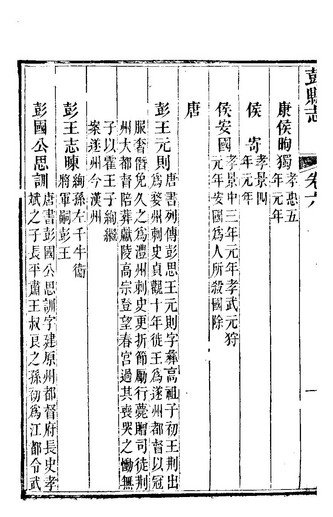 彭縣志 卷六
康侯昫獨孝惠五年元年
侯寄孝景四年元年
侯安國孝景中三年元年孝武元狩元年安國爲人所殺國除
唐
彭王元則唐書列傳彭思王元則字彝高祖子初王荆出
爲婺州刺史貞觀十年徙王爲遂州都督以冠
服奢僭免久之爲澧州刺史更折節勵行薨贈司徒荆
州大都督陪葬獻陵高宗登望春宮過其喪哭之慟無
子以霍王子絢繼
案遂州今漢州
彭王志暕絢孫左千牛衛將軍嗣彭王
彭國公思訓唐書彭國公思訓字建原州都督府長史孝
斌之子長平肅王叔良之孫初爲江都令武